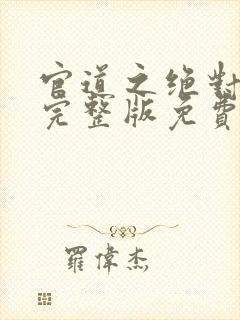 官道之绝對
完整版免費
羅偉杰